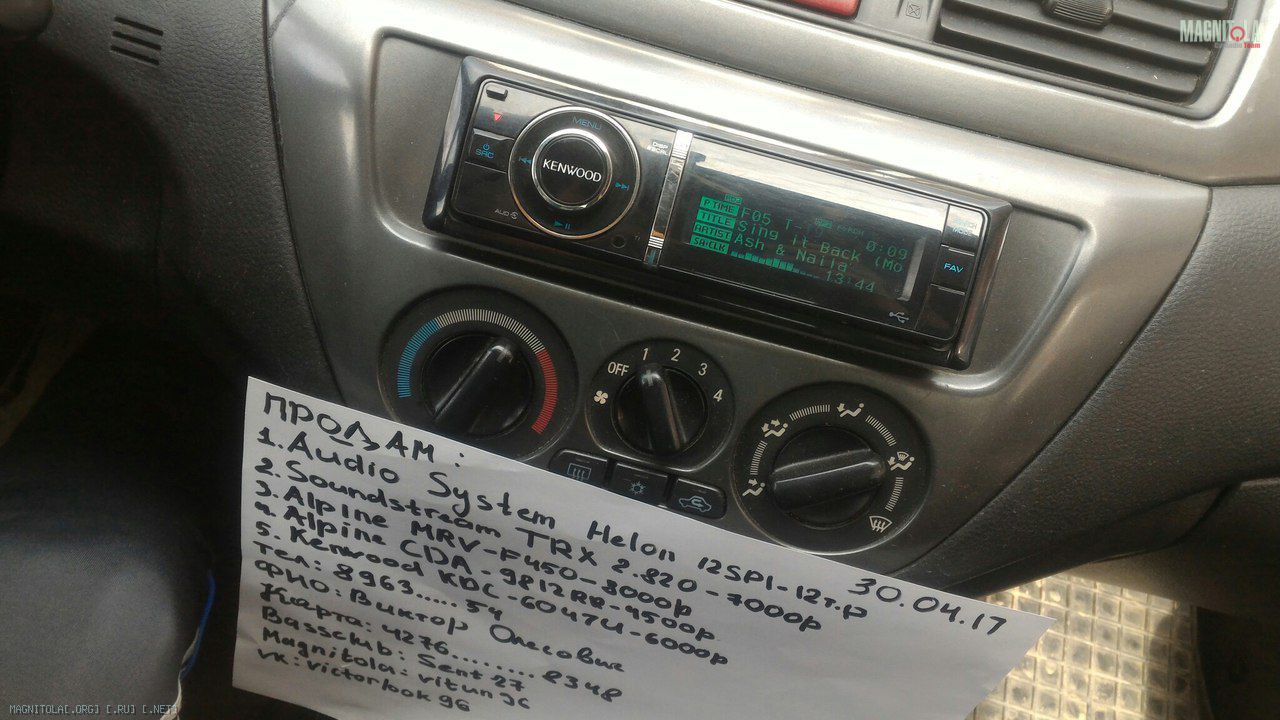 MAGNITOLA
Team
MENU
DISP
SCRL
SRC
KENWOOD
AUD
FAV
P.TIME F05 T- 0:09
TITLE Sing it Back (Mo
ARTIST Ash & Naila
SA·CLK 13:44
OFF 1 2 3 4
ПРОДАМ:
30.04.17
1. Audio System Helon 12SPL-12т.р
2. Soundstream TRX 2.820-7000р
3. Alpine MRV-F450-8000р
4. Alpine CDA-9812RR-4500р
5. Kenwood KDC-6047U-6000р
Тел: 8963..... 54
ФИО: Виктор Олегович
Карта: 4276.........8348
Bassclub: Sent 27
Magnitola: vitun96
vk: victorbok96
MAGNITOLA[.ORG] [.RU] [.NET]